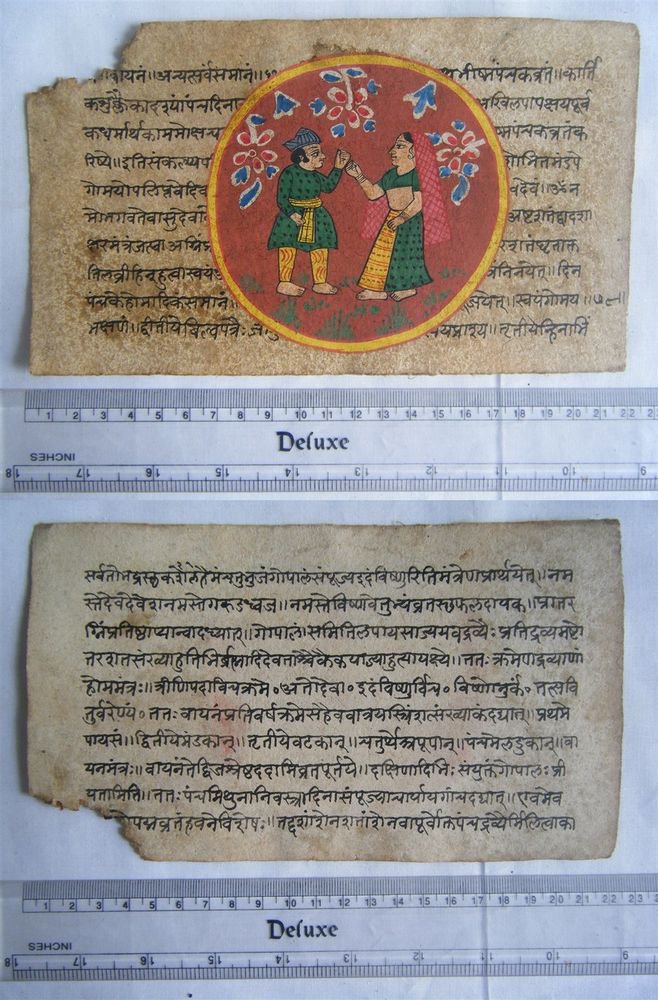 वायनं॥अन्यत्सर्वसमानं॥ भीष्मपंचकव्रतं॥कार्ति
कशुक्लैकादश्यांपंचदिना खिलपापक्षयपूर्व
कधर्मार्थकाममोक्ष ष्मपंचकव्रतंक
रिष्ये॥इतिसंकल्प्य गोभितमंडपे
गोमयोपलिप्तवेदि वदेवं॥ॐन
मोभगवतेवासुदेवा अष्टशतंद्वादशा
क्षरमंत्रंजप्त्वा शतंघृताक्त
तिलव्रीहिहुत्वास्वय निनयेत्॥दिन
पंचकेहोमादिकंसमानं॥ स्वयंगोमय
भक्षणं॥द्वितीयेबिल्वपत्रैः यंप्राश्य॥तृतीयेन्हिनाभिं
1 2 3 4 5 6 7 8 9 10 11 12 13 14 15 16 17 18 19 20 21 22 23
Deluxe
INCHES
8 17 16 15 14 13 12 11 10 9
सर्वतोभद्रस्थ चतुर्भुजंगोपालंसंपूज्यइदंविष्णुरितिमंत्रेणप्रार्थयेत्॥नम
स्तेदेवदेवेशनमस्तेगरुडध्वज॥नमस्तेविष्णवेतुभ्यंव्रतस्यफलदायक॥प्रातर
ग्निंप्रतिष्ठाप्यान्वादध्यात्॥गोपालं॥समितिलपायसाज्य द्रव्यैः प्रतिद्रव्यमष्टो
तरशतसंख्याहुतिभि ब्रह्मादिदेवताश्चैकैकयाज्याहुत्यायक्ष्ये॥ततः क्रमेणद्रव्याणां
होममंत्रः॥त्रीणिपदाविचक्रमे॰अतोदेवा॰इदंविष्णुर्विच॰विष्णोर्नुकं॰तत्सवि
तुर्वरेण्यं॰ततः वायनंप्रतिवर्षक्रमेसहैववात्रयस्त्रिंशत्संख्याकंदद्यात्॥प्रथमे
पायसं॥द्वितीयेमंडकान्॥तृतीयेवटकान्॥चतुर्थेअपूपान्॥पंचमेलडुकान्॥वा
यनमंत्रः॥वायनंतेद्विजश्रेष्ठददामिव्रतपूर्तये॥दक्षिणादिभिः संयुक्तंगोपालः प्री
यतामिति॥ततः पंचमिथुनानिवस्त्रादिनासंपूज्याचार्यायगांचदद्यात्॥एवमेव
गोपद्मव्रतंहवनेविशेषः॥तद्दशांशेनशतांशेनवापूर्वोक्तपंचद्रव्यैर्मिलित्वाका
1 2 3 4 5 6 7 8 9 10 11 12 13 14 15 16 17 18 19 20 21 22 23
Deluxe
INCHES
8 17 16 15 14 13 12 11 10 9